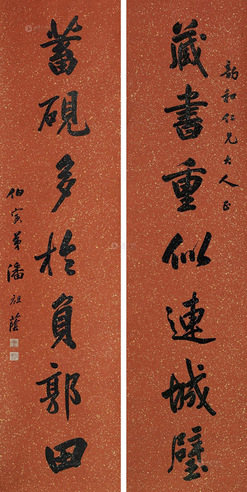 韵和仁兄大人正
藏書重似連城璧
蓄硯多於負郭田
伯寅弟潘祖蔭